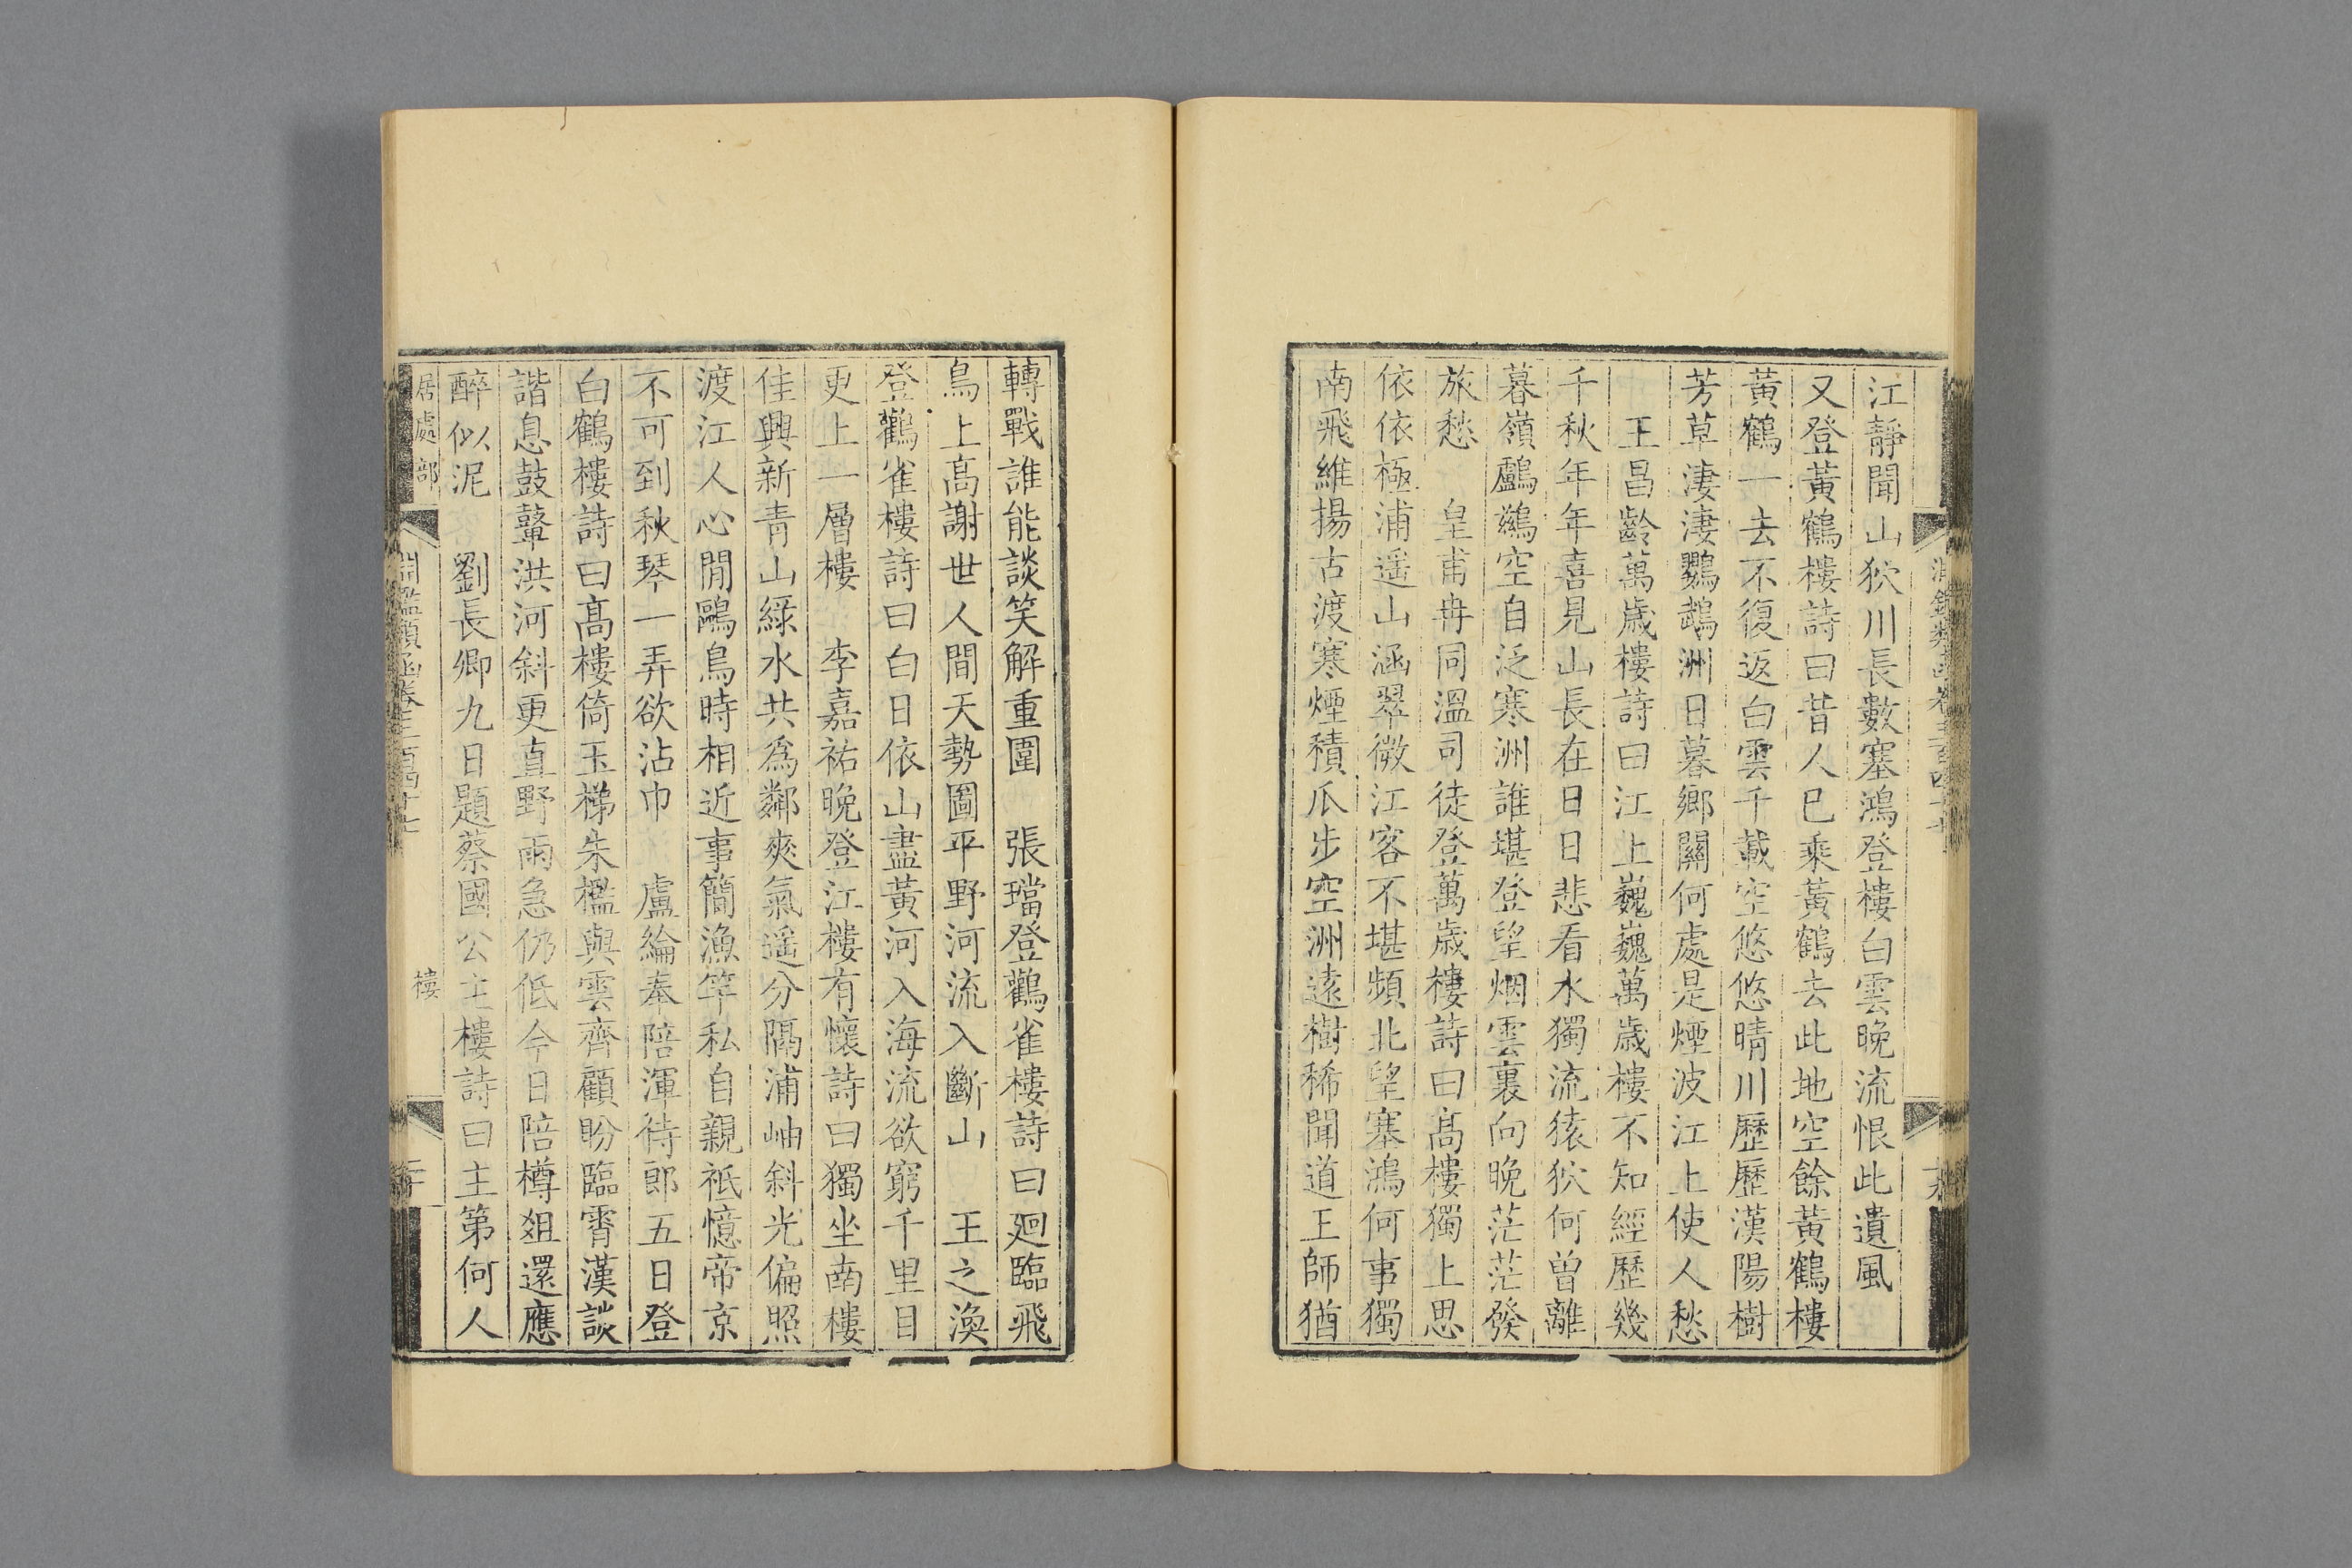 江靜聞山狖川長數塞鴻登樓白雲晚流恨此遺風
又登黃鶴樓詩曰昔人已乘黃鶴去此地空餘黃鶴樓
黃鶴一去不復返白雲千載空悠悠晴川歷歷漢陽樹
芳草淒淒鸚鵡洲日暮鄉關何處是煙波江上使人愁
王昌齡萬歲樓詩曰江上巍巍萬歲樓不知經歷幾
千秋年年喜見山長在日日悲看水獨流猿狖何曾離
暮嶺鸕鷀空自泛寒洲誰堪登望烟雲裏向晚茫茫發
旅愁 皇甫冉同溫司徒登萬歲樓詩曰高樓獨上思
依依極浦遥山涵翠微江客不堪頻北望塞鴻何事獨
南飛維揚古渡寒煙積瓜步空洲遠樹稀聞道王師猶
轉戰誰能談笑解重圍 張璫登鸛雀樓詩曰廻臨飛
鳥上高謝世人間天勢圖平野河流入斷山 王之渙
登鸛雀樓詩曰白日依山盡黃河入海流欲窮千里目
更上一層樓 李嘉祐晚登江樓有懷詩曰獨坐南樓
佳興新青山綠水共爲鄰爽氣遥分隔浦岫斜光偏照
渡江人心閒鷗鳥時相近事簡漁竿私自親祗憶帝京
不可到秋琴一弄欲沾巾 盧綸奉陪渾侍郎五日登
白鶴樓詩曰高樓倚玉梯朱檻與雲齊顧盼臨霄漢談
諧息鼓鼙洪河斜更直野雨急仍低今日陪樽爼還應
醉似泥 劉長卿九日題蔡國公主樓詩曰主第何人
居處部 淵鑑類函卷三百四十七 樓